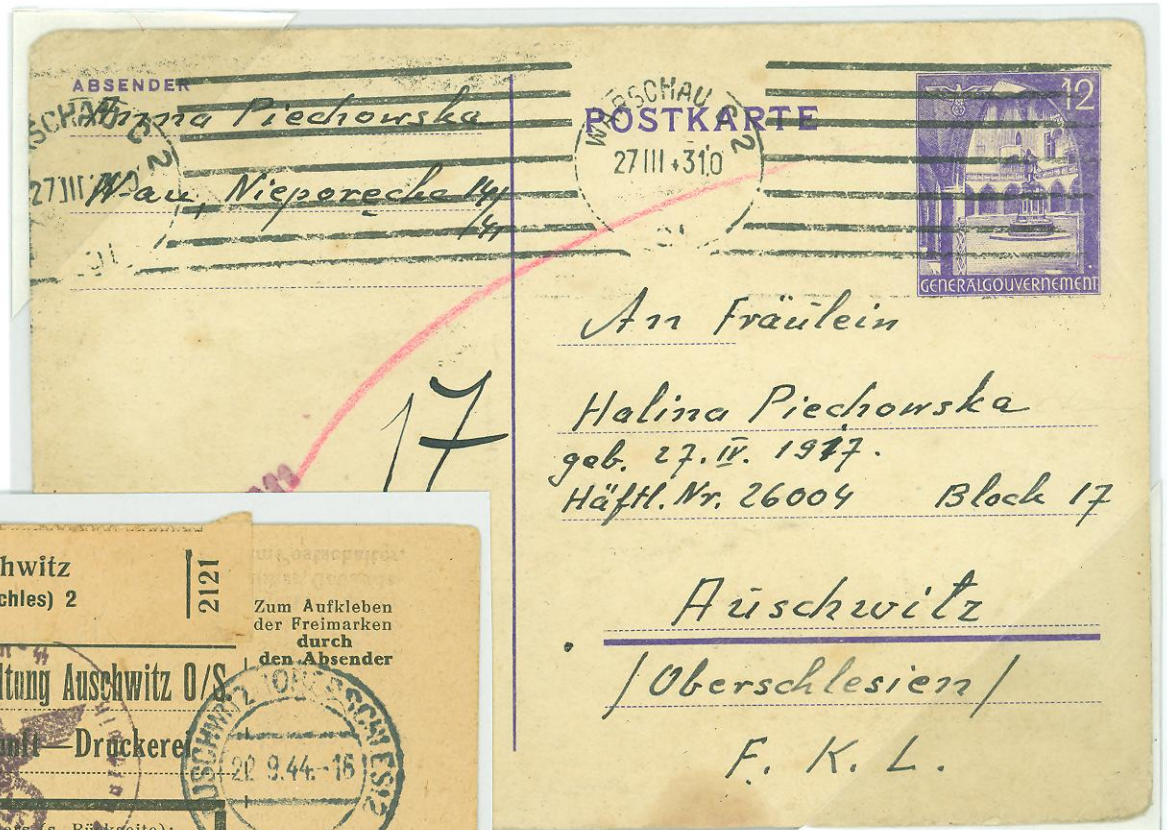 ABSENDER
Anna Piechowska
W-au, Nieporęcka 14/
POSTKARTE
WARSCHAU C 2
27 III 43 10
12
GENERALGOUVERNEMENT
An Fräulein
Halina Piechowska
geb. 27. IV. 1917.
Häftl. Nr. 26004 Block 17
Auschwitz
/Oberschlesien/
F. K. L.
17
SCHAU C 2
27 III
hwitz
chles) 2
2121
Zum Aufkleben
der Freimarken
durch
den Absender
ltung Auschwitz O/S
nft—Druckerei
USCHWITZ (OBERSCHLES) 2
20 9.44.-16